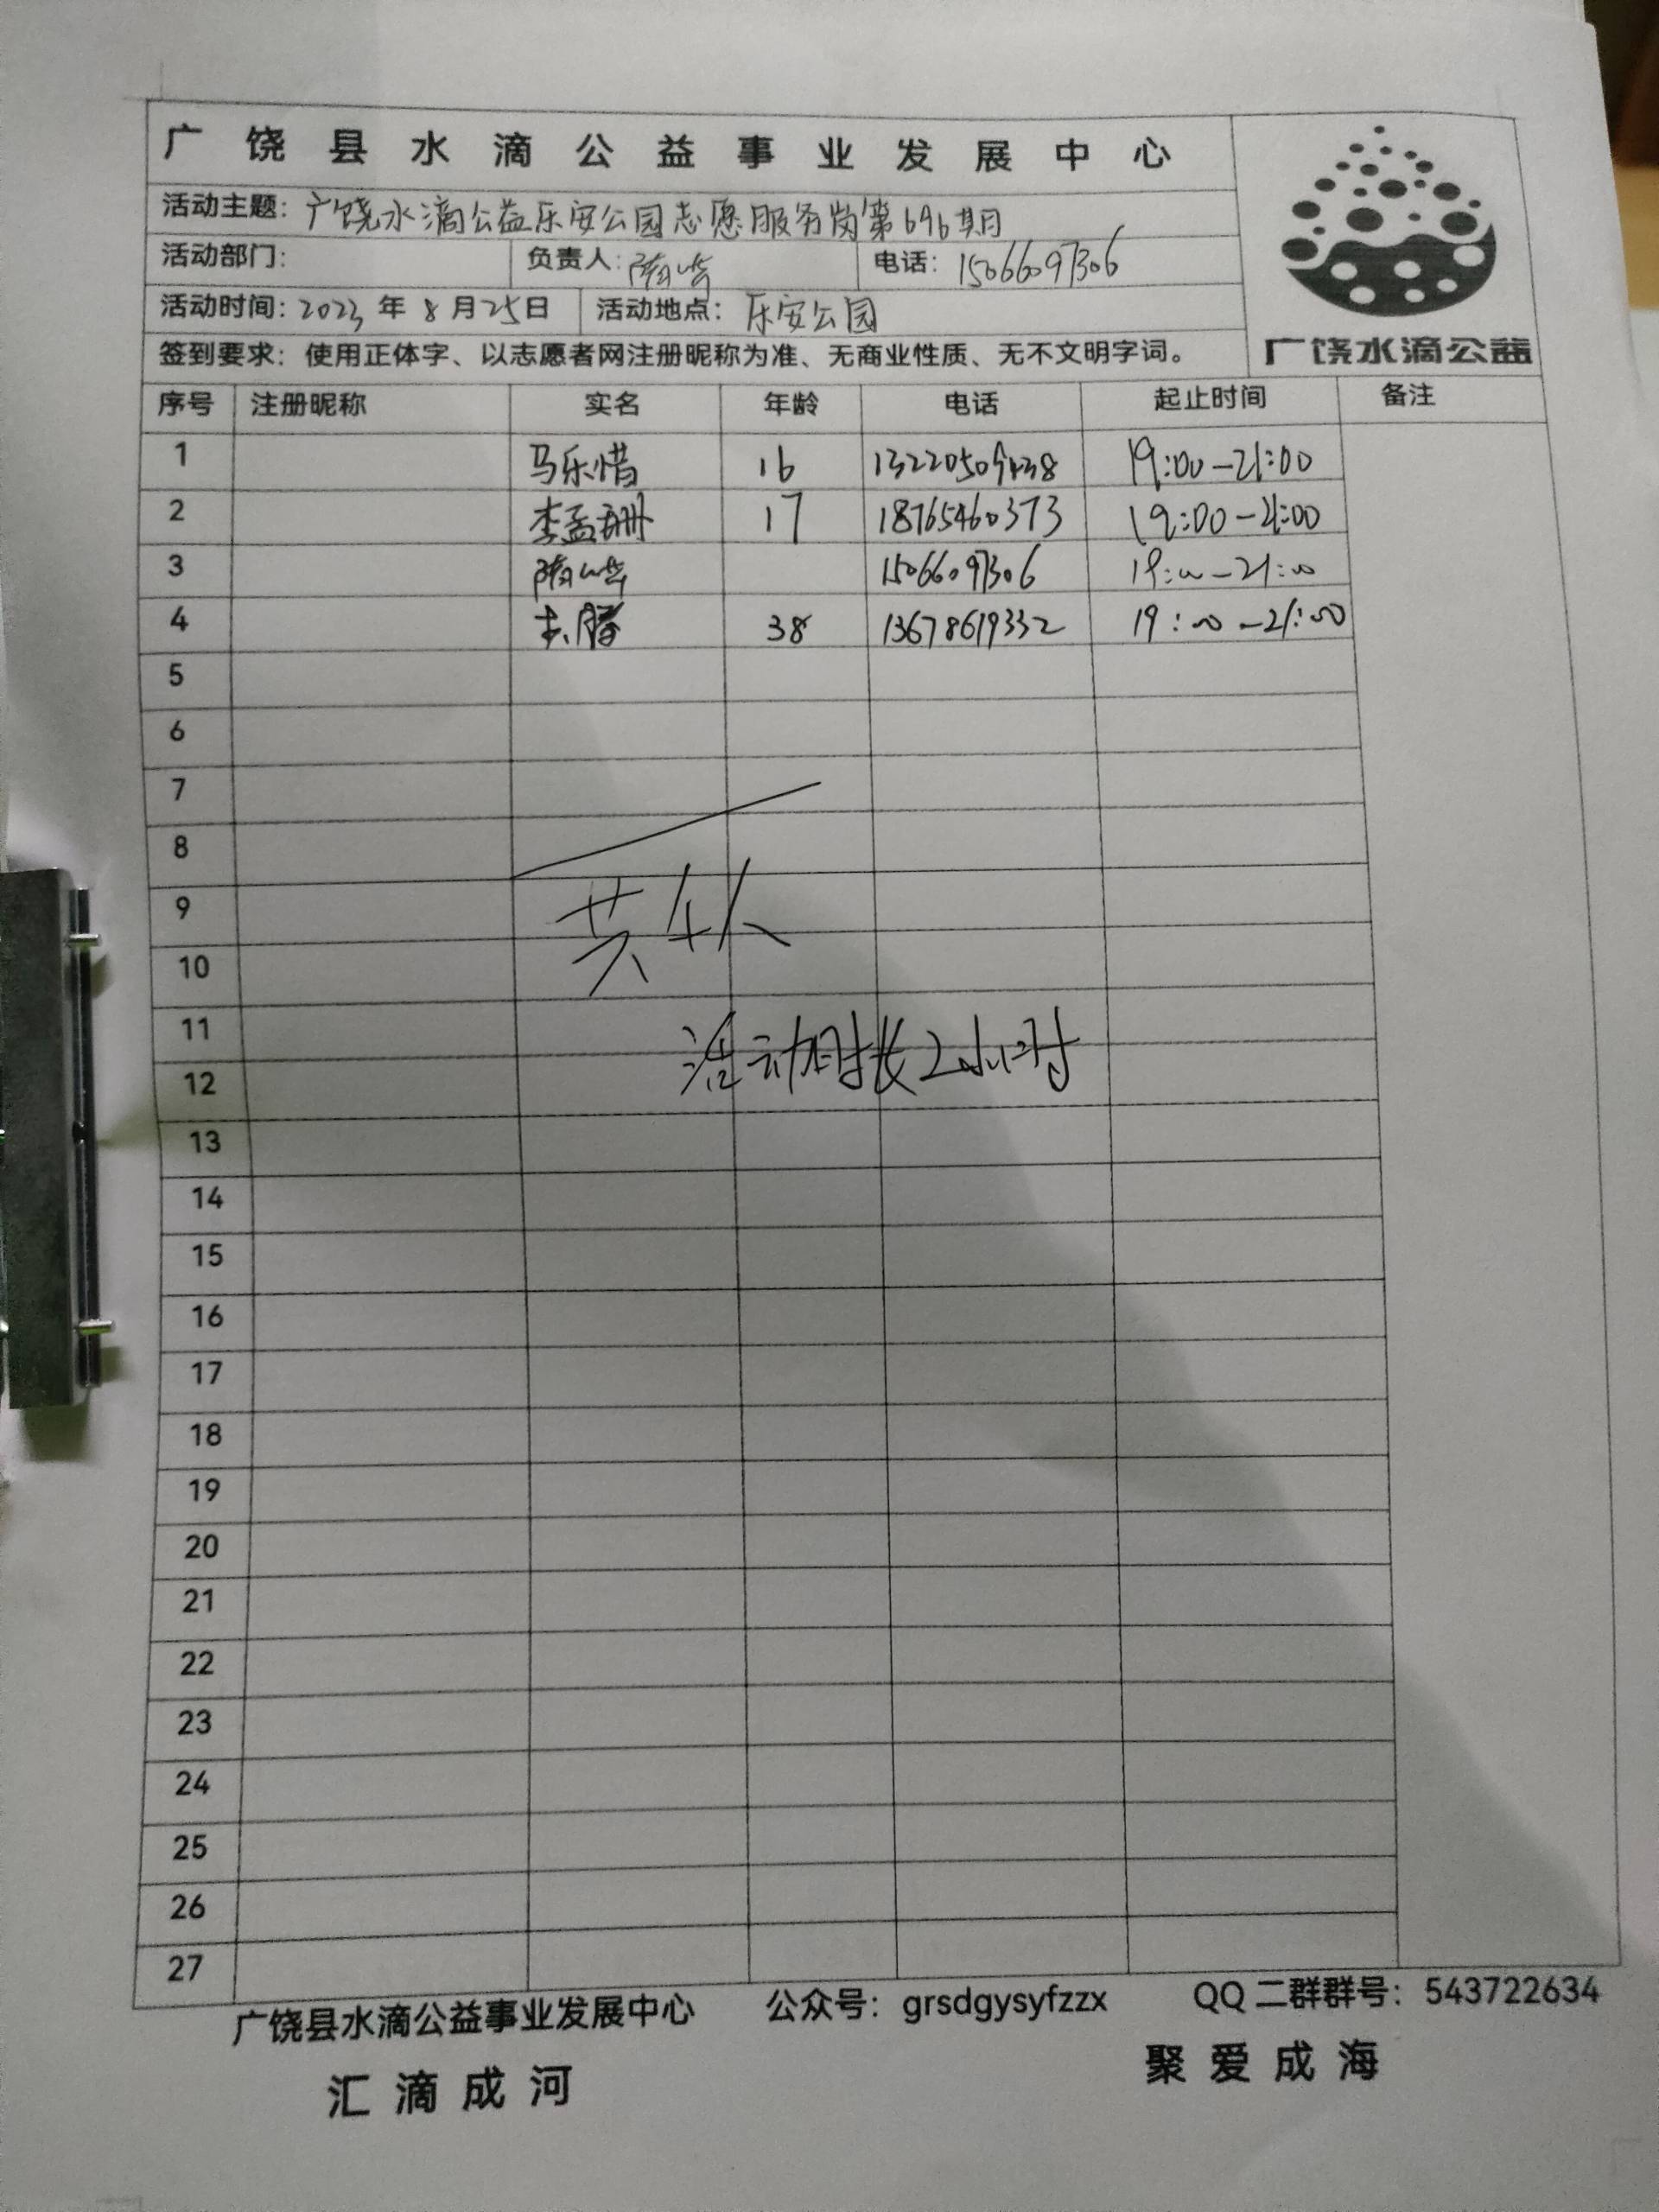 广饶县水滴公益事业发展中心
活动主题：广饶水滴公益乐安公园志愿服务岗第696期
活动部门： 负责人： 电话：15066097306
活动时间：2023年8月25日 活动地点：乐安公园
签到要求：使用正体字、以志愿者网注册昵称为准、无商业性质、无不文明字词。
广饶水滴公益
序号 注册昵称 实名 年龄 电话 起止时间 备注
1 马乐惜 16 19:00-21:00
2 李孟珊 17 18765460373 19:00-21:00
3 15066097306 19:00-21:00
4 38 13678619332 19:00-21:00
5
6
7
8
9
共4人
10
11
活动时长2小时
12
13
14
15
16
17
18
19
20
21
22
23
24
25
26
27
广饶县水滴公益事业发展中心 公众号：grsdgysyfzzx QQ二群群号：543722634
汇滴成河 聚爱成海